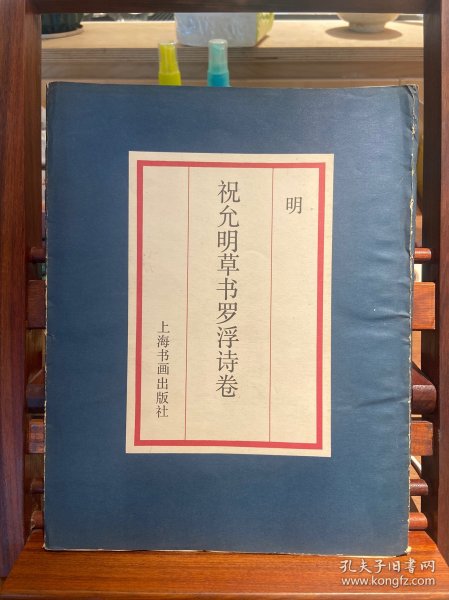 明
祝允明草书罗浮诗卷
上海书画出版社
孔夫子旧书网
www.kongfz.com